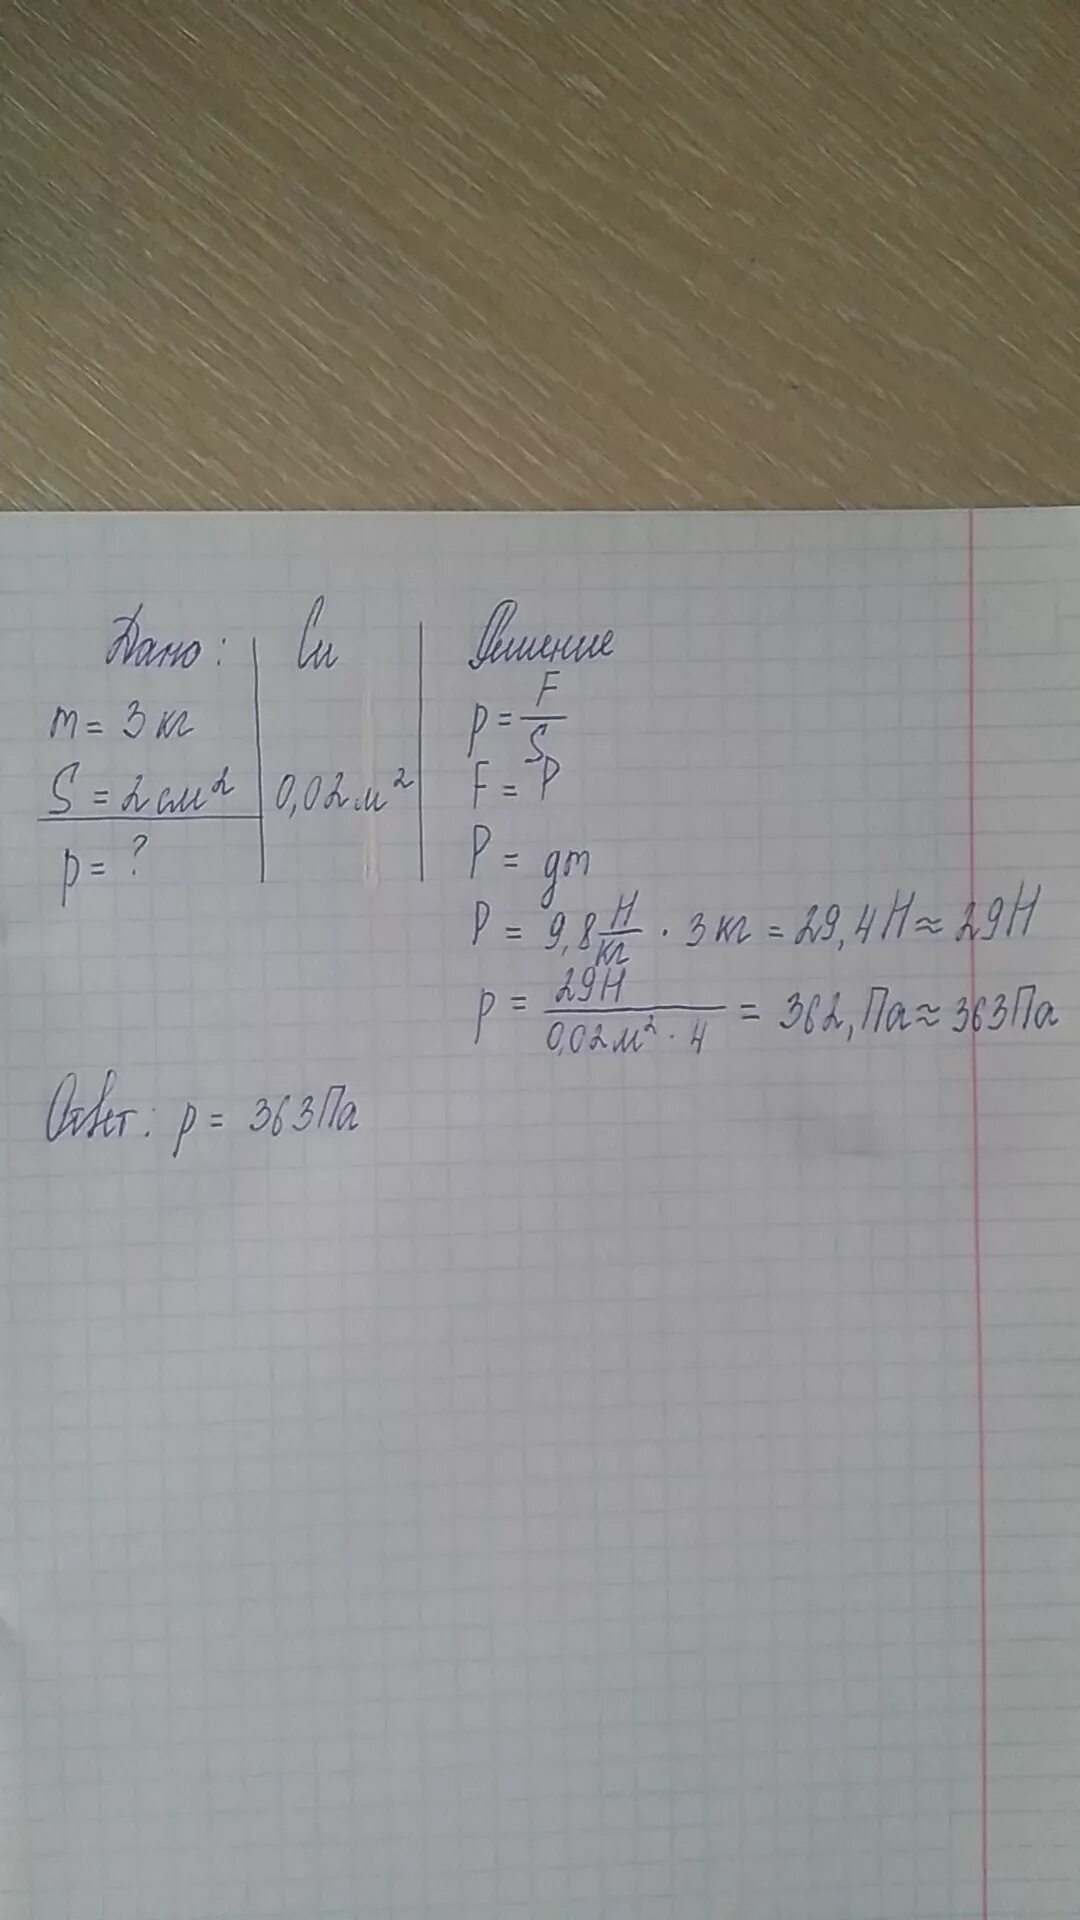 Дано:
m = 3 кг
S = 2 см²
p = ?
Си
0,02 м²
Решение
p = F/S
F = P
P = gm
P = 9,8 Н/кг · 3 кг = 29,4 Н ≈ 29 Н
p = 29 Н / 0,02 м² · 4 = 362, Па ≈ 363 Па
Ответ: p = 363 Па